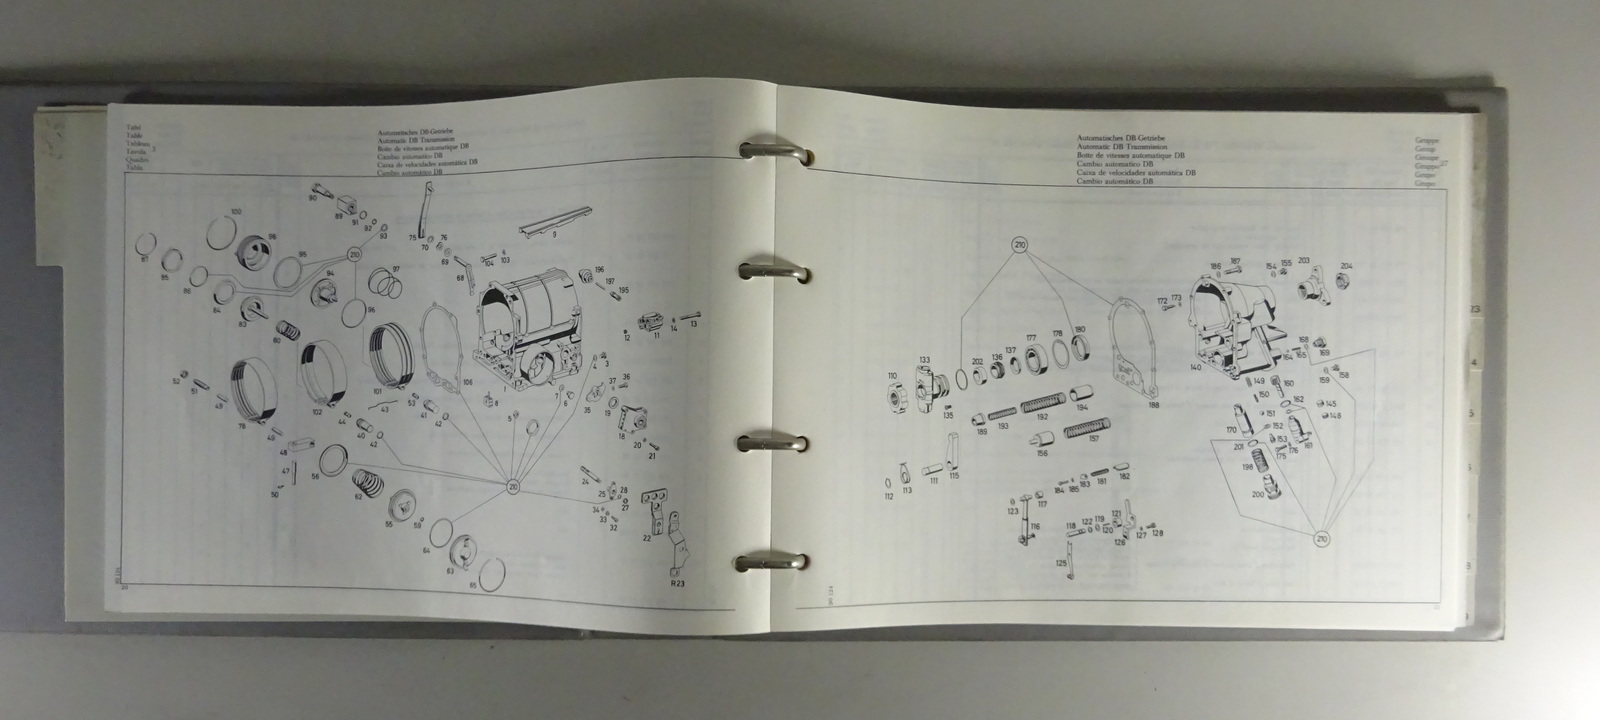 Tafel
Table
Tableau
Tavola 3
Quadro
Tabla
Automatisches DB-Getriebe
Automatic DB Transmission
Boite de vitesses automatique DB
Cambio automatico DB
Caixa de velocidades automática DB
Cambio automático DB
Automatisches DB-Getriebe
Automatic DB Transmission
Boite de vitesses automatique DB
Cambio automatico DB
Caixa de velocidades automática DB
Cambio automático DB
Gruppe
Group
Groupe
Gruppo 27
Grupo
Grupo
90
89
91
92
93
100
98
95
210
94
97
96
85
86
84
83
80
75
70
76
69
68
104
103
9
196
197
195
11
12
14
13
1
106
101
102
78
52
51
49
49
48
47
50
44
40
42
43
53
41
42
8
5
7
6
4
3
37
36
35
19
18
20
21
56
62
55
59
64
63
65
210
24
25
28
27
34
33
32
22
R23
210
110
133
135
202
136
137
177
178
180
188
189
193
192
194
156
157
112
113
111
115
184
185
183
181
182
123
116
117
118
122
119
120
121
126
127
128
125
172
173
186
187
154
155
203
204
140
164
165
168
169
158
159
149
150
151
160
162
145
148
170
152
153
175
176
161
201
198
200
210